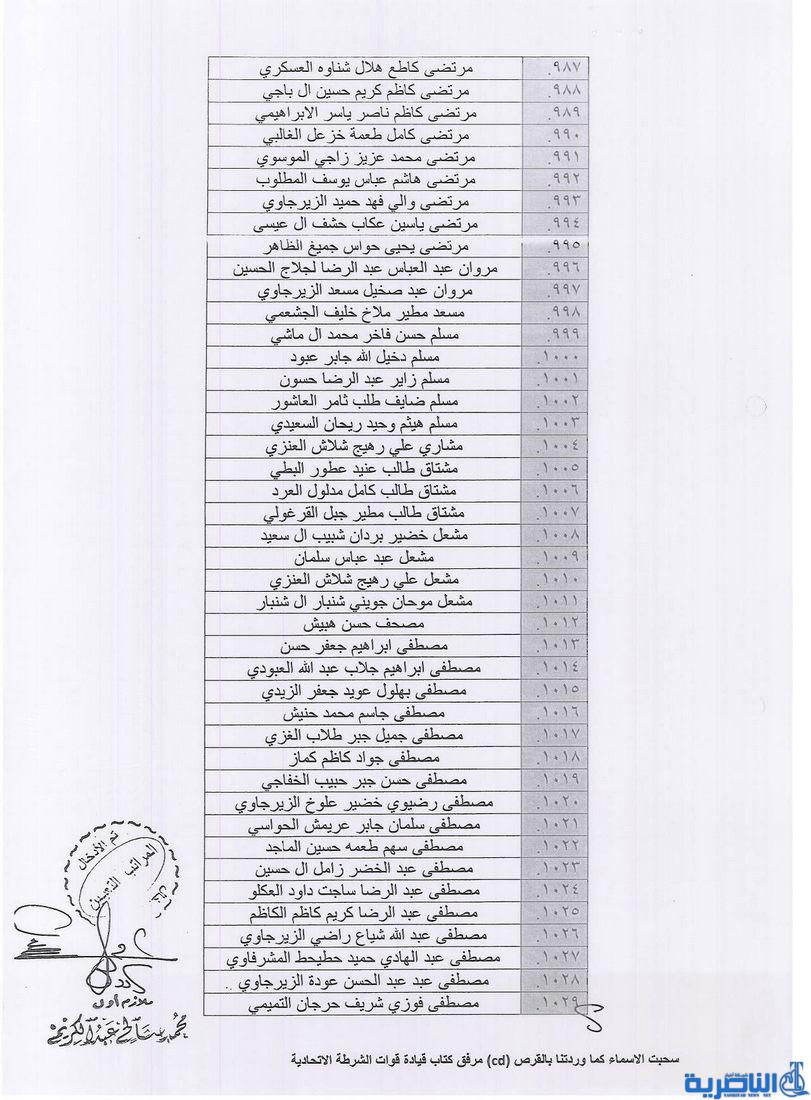 ٩٨٧. مرتضى كاطع هلال شناوه العسكري
٩٨٨. مرتضى كاظم كريم حسين ال باجي
٩٨٩. مرتضى كاظم ناصر ياسر الابراهيمي
٩٩٠. مرتضى كامل طعمة خزعل الغالبي
٩٩١. مرتضى محمد عزيز زاجي الموسوي
٩٩٢. مرتضى هاشم عباس يوسف المطلوب
٩٩٣. مرتضى والي فهد حميد الزيرجاوي
٩٩٤. مرتضى ياسين عكاب حشف ال عيسى
٩٩٥. مرتضى يحيى حواس جميغ الظاهر
٩٩٦. مروان عبد العباس عبد الرضا لجلاج الحسين
٩٩٧. مروان عبد صخيل مسعد الزيرجاوي
٩٩٨. مسعد مطير ملاخ خليف الجشعمي
٩٩٩. مسلم حسن فاخر محمد ال ماشي
١٠٠٠. مسلم دخيل الله جابر عبود
١٠٠١. مسلم زاير عبد الرضا حسون
١٠٠٢. مسلم ضايف طلب ثامر العاشور
١٠٠٣. مسلم هيثم وحيد ريحان السعيدي
١٠٠٤. مشاري علي رهيج شلاش العنزي
١٠٠٥. مشتاق طالب عنيد عطور البطي
١٠٠٦. مشتاق طالب كامل مدلول العرد
١٠٠٧. مشتاق طالب مطير جبل القرغولي
١٠٠٨. مشعل خضير بردان شبيب ال سعيد
١٠٠٩. مشعل عبد عباس سلمان
١٠١٠. مشعل علي رهيج شلاش العنزي
١٠١١. مشعل موحان جويني شنبار ال شنبار
١٠١٢. مصحف حسن هبيش
١٠١٣. مصطفى ابراهيم جعفر حسن
١٠١٤. مصطفى ابراهيم جلاب عبد الله العبودي
١٠١٥. مصطفى بهلول عويد جعفر الزيدي
١٠١٦. مصطفى جاسم محمد حنيش
١٠١٧. مصطفى جميل جبر طلاب الغزي
١٠١٨. مصطفى جواد كاظم كماز
١٠١٩. مصطفى حسن جبر حبيب الخفاجي
١٠٢٠. مصطفى رضيوي خضير علوخ الزيرجاوي
١٠٢١. مصطفى سلمان جابر عريمش الحواسي
١٠٢٢. مصطفى سهم طعمه حسين الماجد
١٠٢٣. مصطفى عبد الخضر زامل ال حسين
١٠٢٤. مصطفى عبد الرضا ساجت داود العكلو
١٠٢٥. مصطفى عبد الرضا كريم كاظم الكاظم
١٠٢٦. مصطفى عبد الله شياع راضي الزيرجاوي
١٠٢٧. مصطفى عبد الهادي حميد حطيحط المشرفاوي
١٠٢٨. مصطفى عبد عبد الحسن عودة الزيرجاوي
١٠٢٩. مصطفى فوزي شريف حرجان التميمي
تم الأدخال
ملازم اول
عبد الكريم
سحبت الاسماء كما وردتنا بالقرص (cd) مرفق كتاب قيادة قوات الشرطة الاتحادية
شبكة اخبار
الناصرية
NASIRIYAH NEWS NET